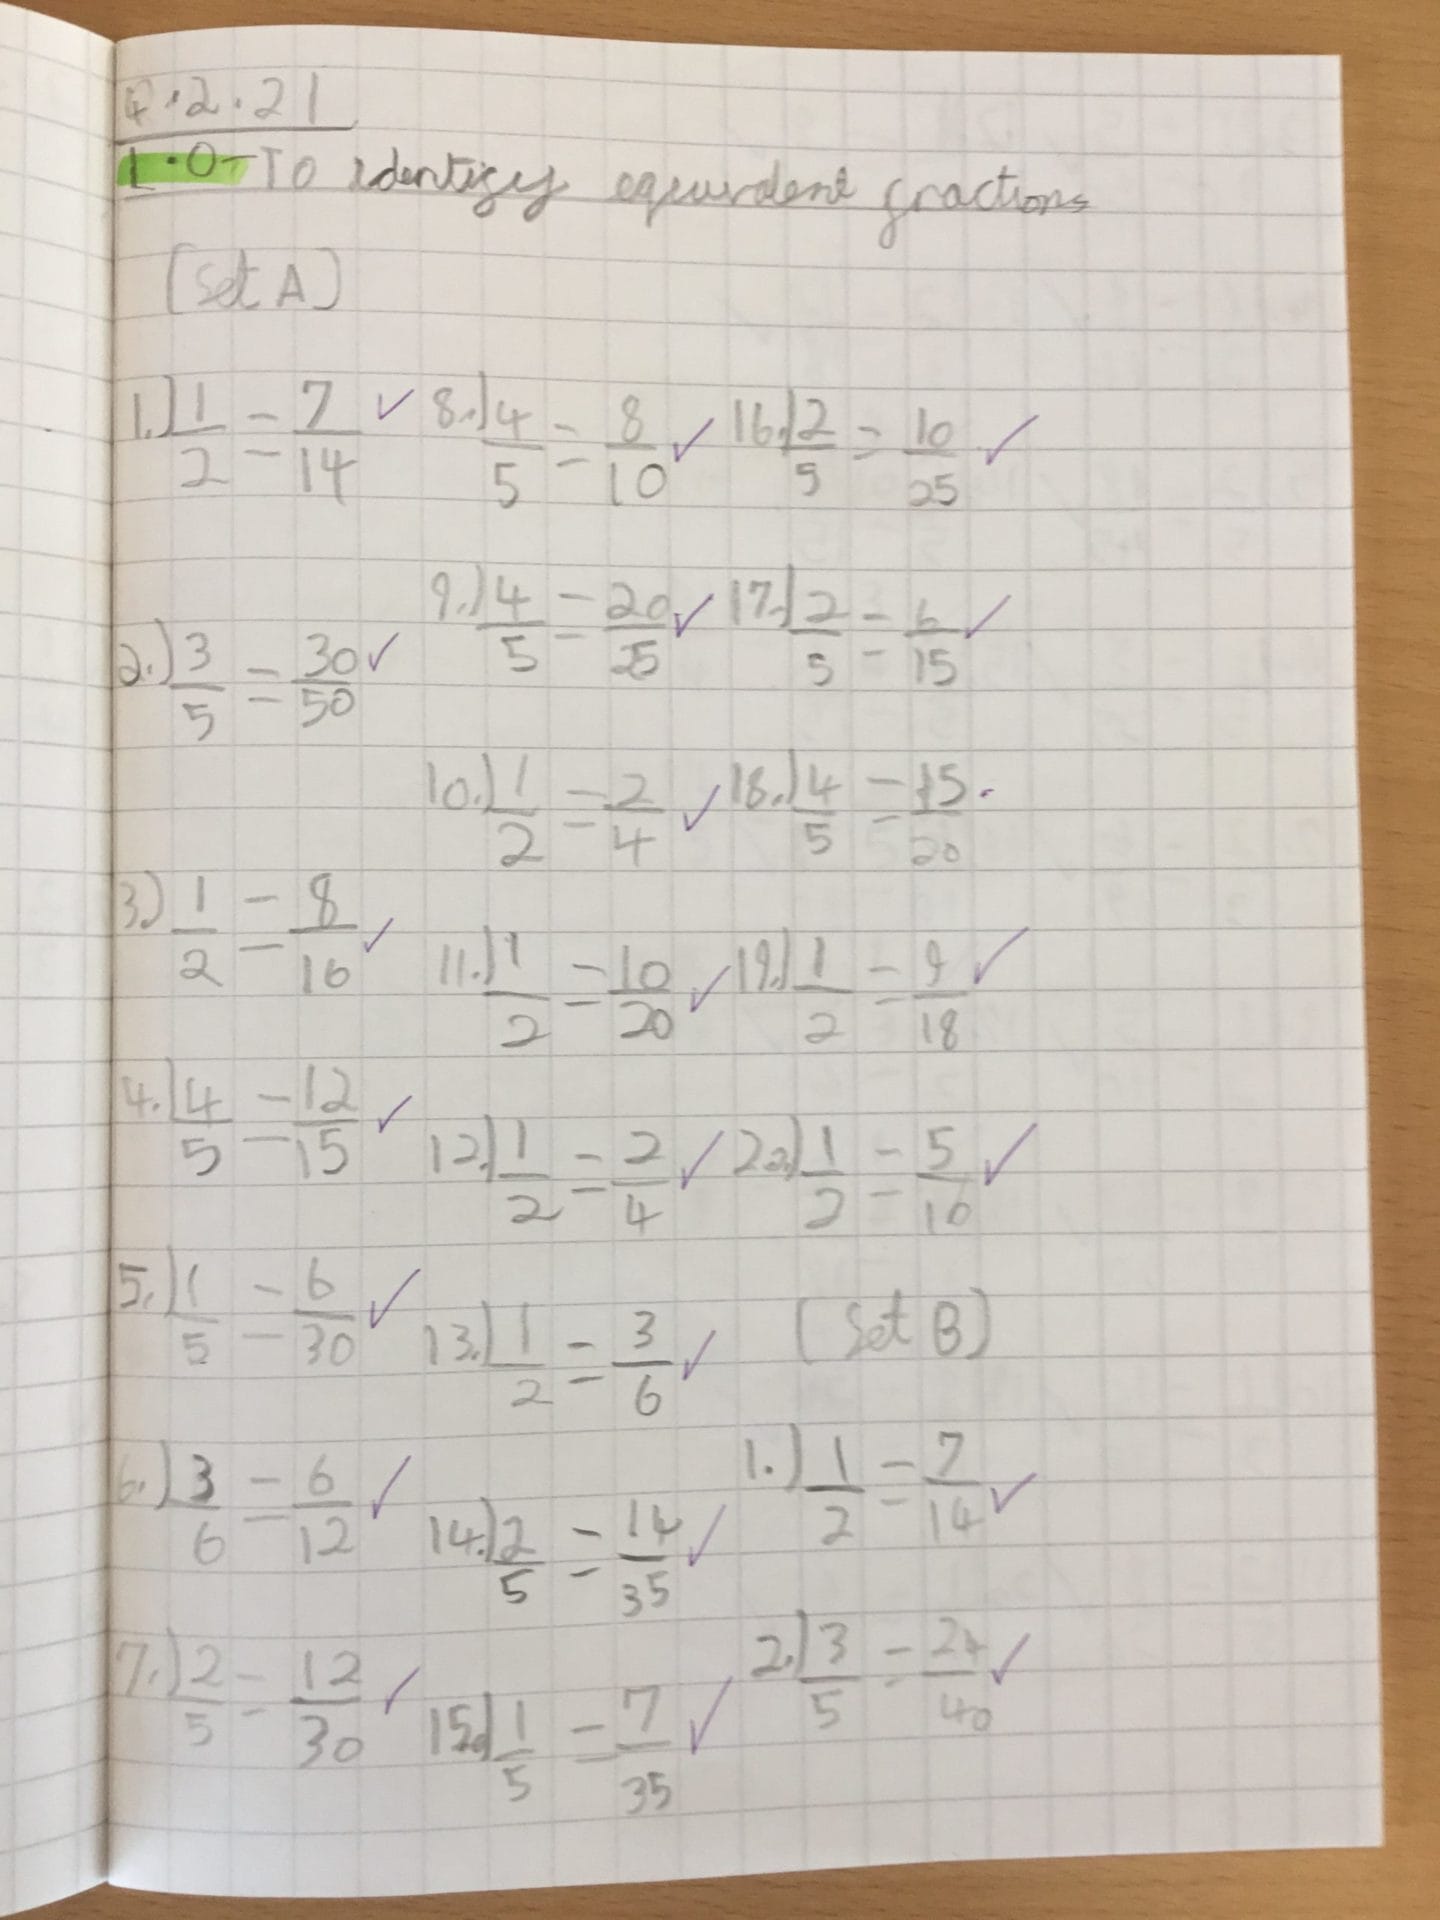 4.2.21
L.O - To identify equivalent fractions
[Set A]
1.) 1/2 = 7/14 ✓
2.) 3/5 = 30/50 ✓
3.) 1/2 = 8/16 ✓
4.) 4/5 = 12/15 ✓
5.) 1/5 = 6/30 ✓
6.) 3/6 = 6/12 ✓
7.) 2/5 = 12/30 ✓
8.) 4/5 = 8/10 ✓
9.) 4/5 = 20/25 ✓
10.) 1/2 = 2/4 ✓
11.) 1/2 = 10/20 ✓
12.) 1/2 = 2/4 ✓
13.) 1/2 = 3/6 ✓
14.) 2/5 = 14/35 ✓
15.) 1/5 = 7/35 ✓
16.) 2/5 = 10/25 ✓
17.) 2/5 = 6/15 ✓
18.) 4/5 = 15/20 .
19.) 1/2 = 9/18 ✓
20.) 1/2 = 5/10 ✓
[Set B]
1.) 1/2 = 7/14 ✓
2.) 3/5 = 24/40 ✓